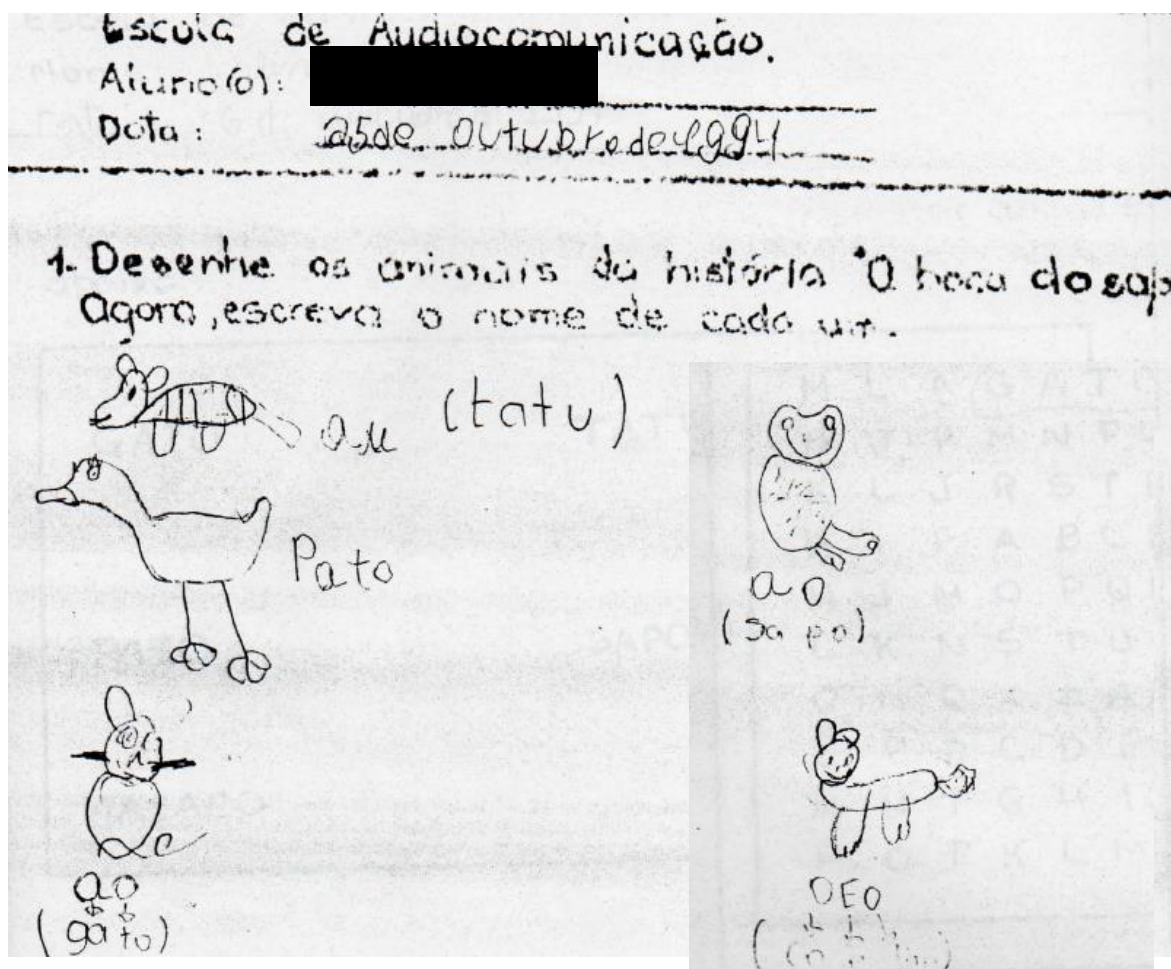 Escola de Audiocomunicação.
Aluno(a):
Data: 25 de outubro de 1994
1- Desenhe os animais da história "A boca do sap
Agora, escreva o nome de cada um.
(tatu)
Pato
ao
(sapo)
ao
(gato)
OEO